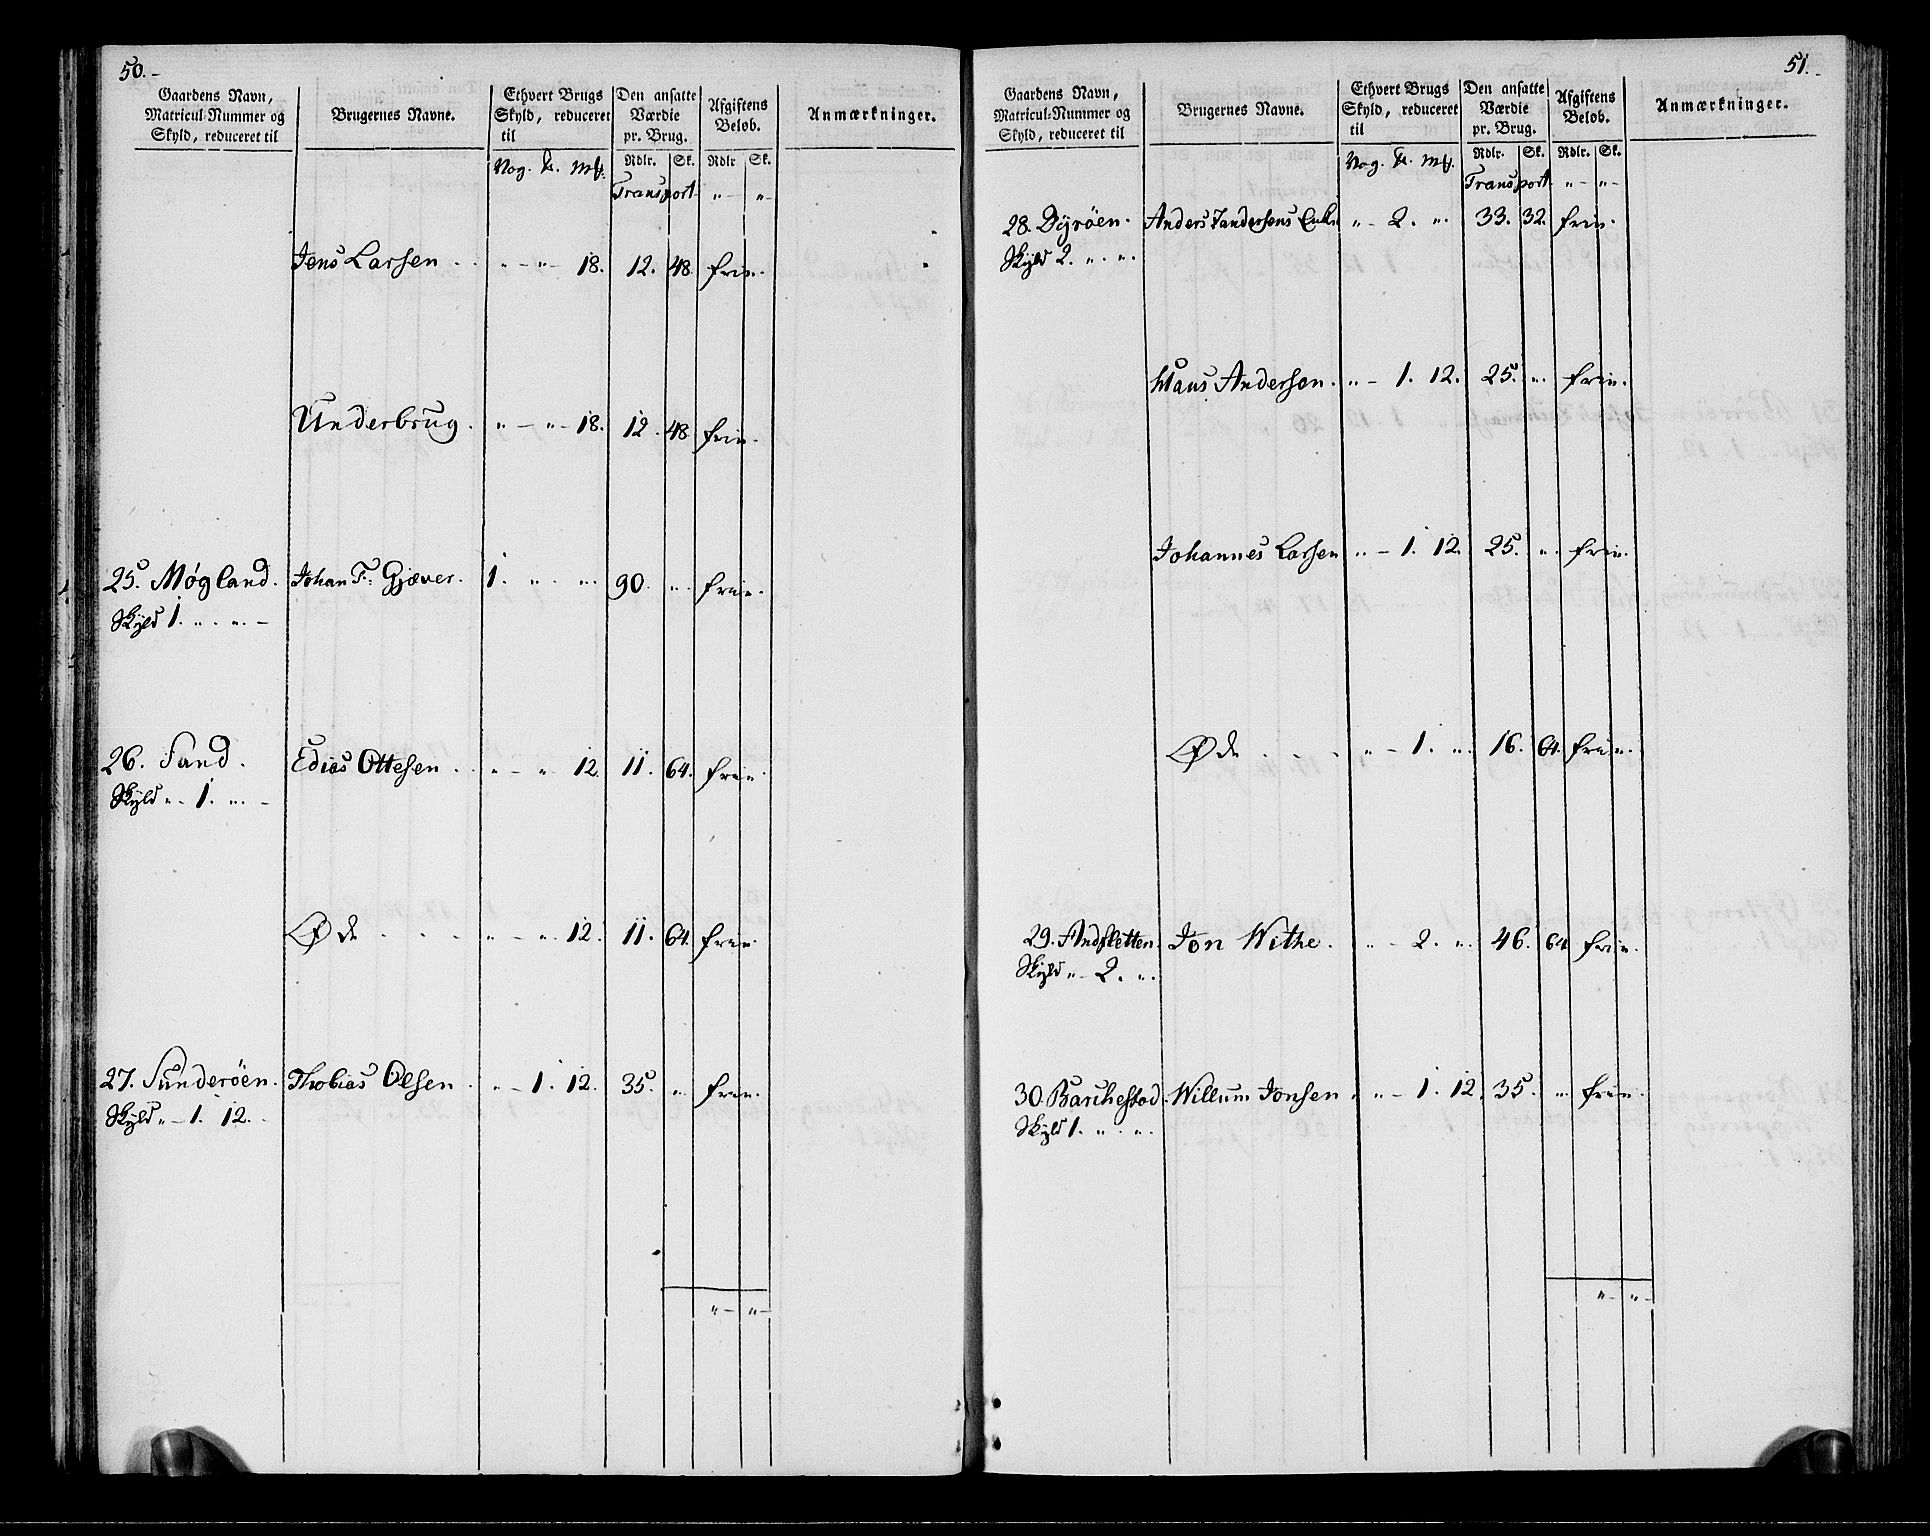 50.-
Gaardens Navn, Matricul-Nummer og Skyld, reduceret til
Brugernes Navne.
Ethvert Brugs Skyld, reduceret til
Den ansatte Værdie pr. Brug.
Afgiftens Beløb.
Anmærkninger.
Vog. ℔. mk. Rdlr. Sk. Rdlr Sk.
Transport " - " -
Jens Larsen . . " - " - 18. 12. 48. frie.
Underbrug . " - " - 18. 12. 48 frie.
25. Møgland. Johan F: Gjæver. 1. " . " . 90. " . frie.
Skyld 1. " . " . -
26. Sand. Edias Ottesen . . " - " . 12. 11. 64. frie.
Skyld " - 1. " . -
Øde . . . " - " . 12. 11. 64. frie.
27. Sunderöen. Thobias Olsen . " - 1. 12. 35. " . frie.
Skyld " - 1. 12. -
" - " -
51.
Gaardens Navn, Matricul-Nummer og Skyld, reduceret til
Brugernes Navne.
Ethvert Brugs Skyld, reduceret til
Den ansatte Værdie pr. Brug.
Afgiftens Beløb.
Anmærkninger.
Vog. ℔. mk. Rdlr. Sk. Rdlr. Sk.
Transport " - " -
28. Dyröen. Anders Zandersens Enke " - 2. " . 33. 32. frie.
Skyld 2. " . " .
Hans Anderson. " - 1. 12. 25. " . frie.
Johannes Larsen " - 1. 12. 25. " . frie.
Øde . . . " - 1. " . 16. 64. frie.
29. Andsletten. Jon Withe. " - 2. " . 46. 64 frie.
Skyld " - 2. " .
30. Barchestad. Willum Jonsen . " - 1. 12. 35. " . frie.
Skyld 1. " . " .
" - " -